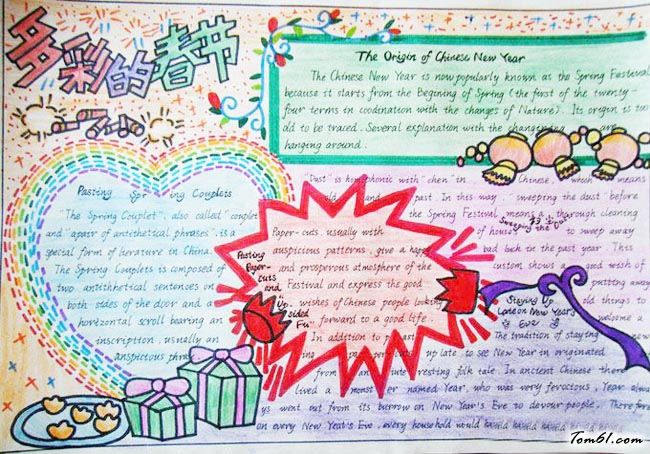 多彩的春节
The Origin of Chinese New Year
The Chinese New Year is now popularly known as the Spring Festeval
because it starts from the Begining of Spring (the first of the twenty-
four terms in coodination with the changes of Nature). Its origin is too
old to be traced. Several explanation with the are
hanging around.
Pasting Spr ing Couplets
"The Spring Couplet", also called "couplet
and "apair of antithetical phrases", is a
special form of lierature in China.
The Spring Couplets is composed of
two antithetical sentences on
both sides of the door and a
horizontal scroll bearing an
inscription, usually an
anspicious phra
Pasting
Paper-
cuts
and
"Up
sided
Fu"
Paper-cuts, usually with
auspicious patterns, give a happy
and prosperous atmosphere of the
Festival and express the good
wishes of Chinese people looking
forward to a good life.
In addition to
Sweeping the Dust
"Dust" is homophonic with "chen" in Chinese, which means
old and past. In this way, "sweeping the dust" before
the Spring Festival means a thorough cleaning
of houses to sweep away
bad luck in the past year. This
custom shows a good wish of
putting away
old things to
welcome a
new
Staying Up
Late on New Year's
Eve
The tradition of staying
up late to see New Year in originated
from an inte resting folk tale. In ancient Chinese there
lived a monst er named Year, who was very ferocious. Year alwa
ys went out from its burrow on New Year's Eve to devour people. Therefore
on every New Year's Eve, every household would
Tom61.com